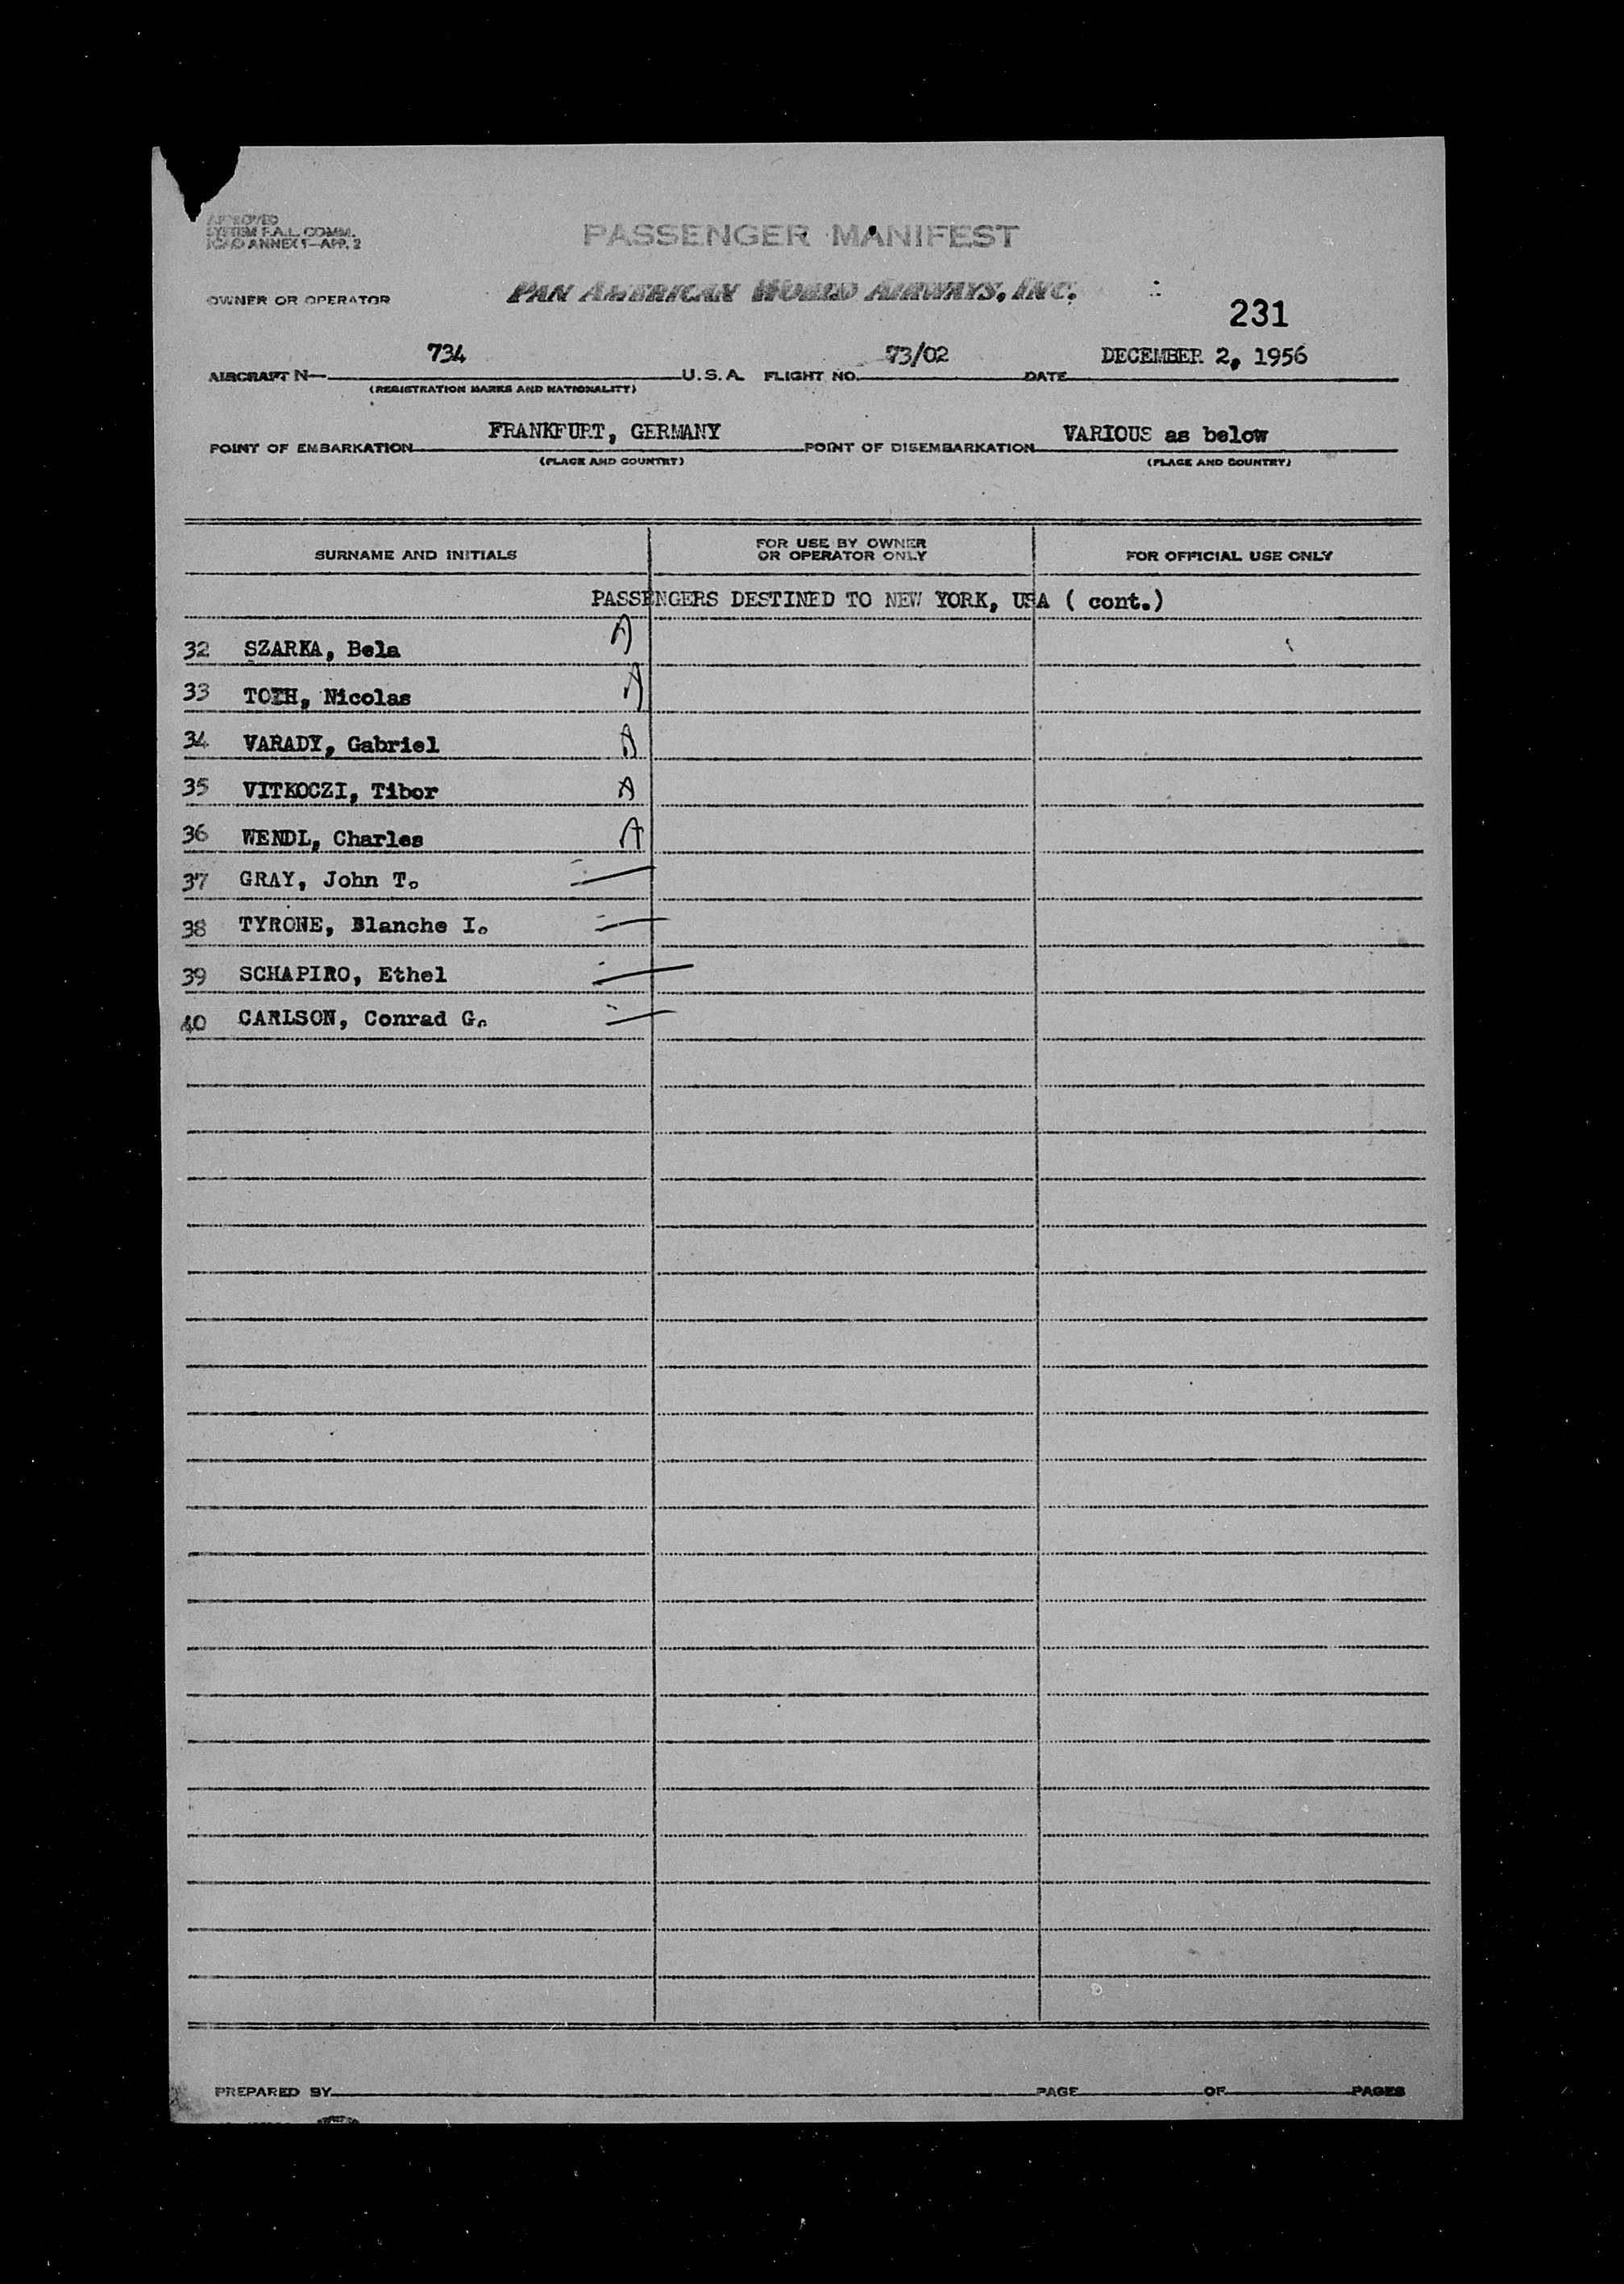 APPROVED
SYSTEM F.A.L. COMM.
ICAO ANNEX 1—APP. 2
PASSENGER MANIFEST
OWNER OR OPERATOR PAN AMERICAN WORLD AIRWAYS, INC.
231
734 73/02 DECEMBER 2, 1956
AIRCRAFT N— U.S.A. FLIGHT NO. DATE
(REGISTRATION MARKS AND NATIONALITY)
FRANKFURT, GERMANY VARIOUS as below
POINT OF EMBARKATION POINT OF DISEMBARKATION
(PLACE AND COUNTRY) (PLACE AND COUNTRY)
SURNAME AND INITIALS FOR USE BY OWNER OR OPERATOR ONLY FOR OFFICIAL USE ONLY
PASSENGERS DESTINED TO NEW YORK, USA ( cont.)
32 SZARKA, Bela A
33 TOTH, Nicolas A
34 VARADY, Gabriel A
35 VITKOCZI, Tibor A
36 WENDL, Charles A
37 GRAY, John T.
38 TYRONE, Blanche I.
39 SCHAPIRO, Ethel
40 CARLSON, Conrad G.
PREPARED BY PAGE OF PAGES